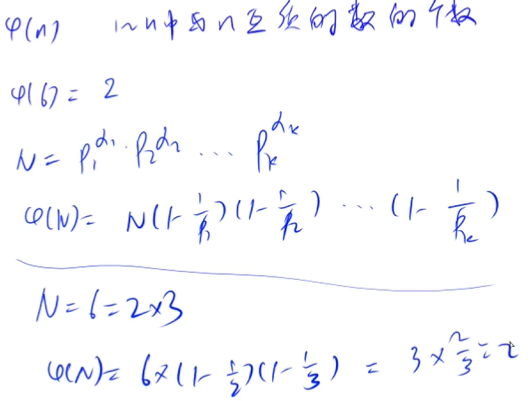 φ(n) 1~n中与n互质的数的个数
φ(6) = 2
N = P₁^α₁ · P₂^α₂ ... Pₖ^αₖ
φ(N) = N(1-1/P₁)(1-1/P₂) ... (1-1/Pₖ)
N = 6 = 2×3
φ(N) = 6×(1-1/2)(1-1/3) = 3×2/3 = 2